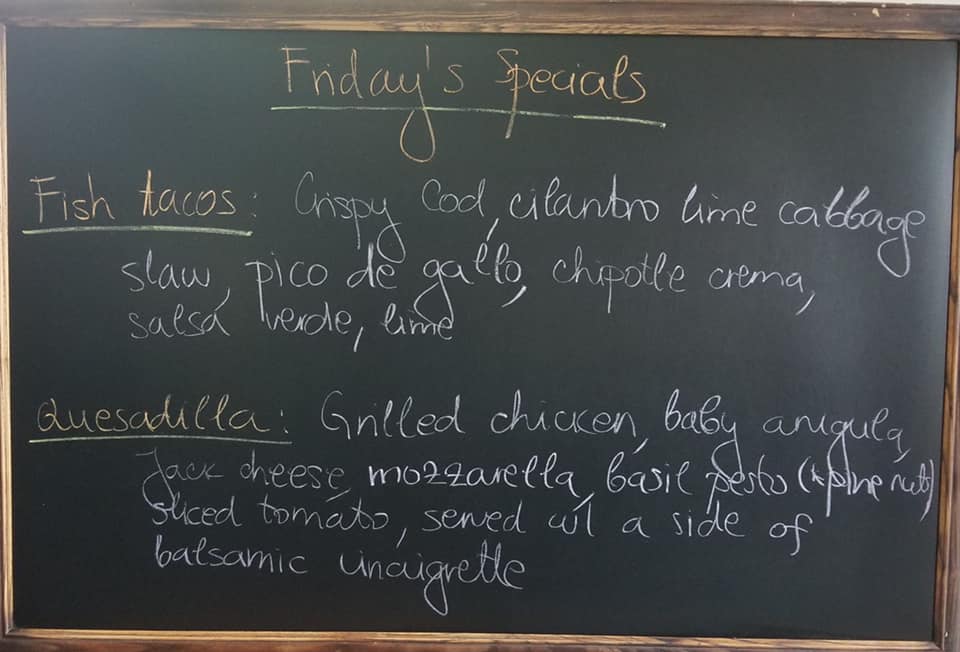 Friday's Specials
Fish tacos: Crispy Cod, cilantro lime cabbage
slaw, pico de gallo, chipotle crema,
salsa verde, lime
Quesadilla: Grilled chicken, baby arugula,
Jack cheese, mozzarella, basil pesto (*pine nuts)
sliced tomato, served w/ a side of
balsamic vinaigrette